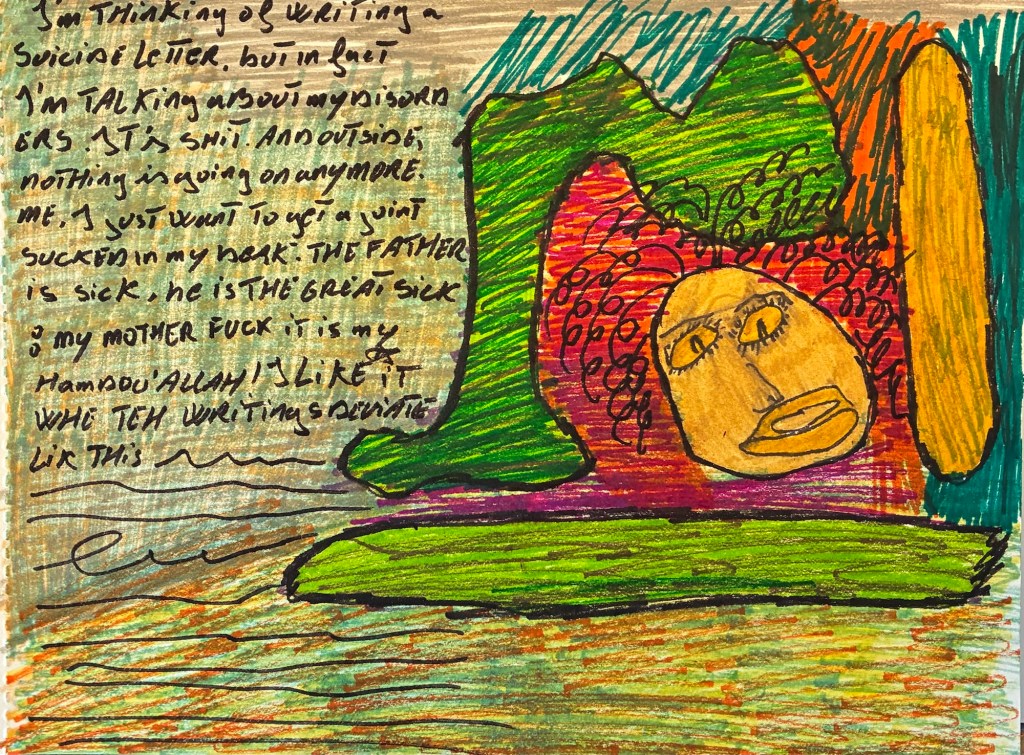 I'm THINKING of WRITING a
SUICIDE LETTER. but in fact
I'm TALKING ABOUT my DISORD
ERS. IT is SHIT. AND OUTSIDE,
NOTHING is going on anymore.
ME, I just WANT TO get a joint
SUCKED in my . THE FATHER
is sick, he is THE GREAT sick
: my MOTHER FUCK it is my
HAMDOU'ALLAH! I LIKE IT
WHE TEH WRITINGS DEVIATE
LIK THIS